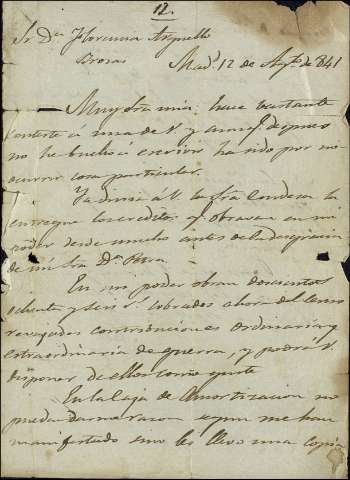 12.
Sra. Da. Florencia Arguello
Brozas
Mad. 12 de Agto. de 841
Muy Sra. mia: hace bastante
conteste á una de V. y aunq. despues
no he buelto á escrivir ha sido por no
ocurrir cosa particular.
Ya diria á V. la Sra. Condesa la
entregue los creditos q. obravan en mi
poder desde mucho antes de la desgracia
de mi Sra. Da.
En mi poder obran doscientos
ochenta y seis r. cobrados ahora del Censo
revajadas contribuciones ordinaria y
estraordinaria de guerra, y podrá V.
disponer de ellos como guste
En la Caja de Amortizacion no
puedo dar razon segun me han
manifestado sino les llevo una copia